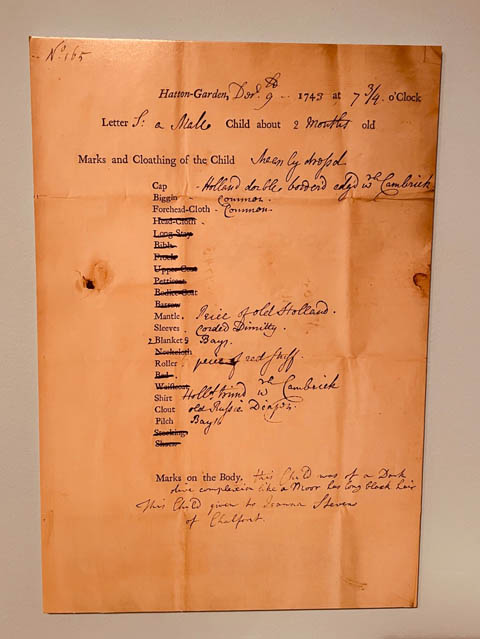 No. 165
Hatton-Garden, Decr. 9th 1743 at 7 3/4 o'Clock
Letter S: a Male Child about 2 Months old
Marks and Cloathing of the Child meanly dress'd
Cap Holland double borderd edg'd wth. Cambrick
Biggin - Common.
Forehead-Cloth - Common.
Head-Cloth
Long-Stay
Bibb
Frock
Upper-Coat
Petticoat
Bodice-Coat
Barrow
Mantle. Peice of old Holland.
Sleeves. Corded Dimitty.
2 Blankets Bays.
Neckcloth
Roller peice of red stuff.
Bed
Waistcoat
Shirt Holld. trimd wth Cambrick
Clout old Russie Diaper.
Pilch Bays
Stockings
Shoes
Marks on the Body. this Child was of a Dark
olive complexion like a Moor has long black hair
This Child given to Joanna Stevens
of Chalfont.